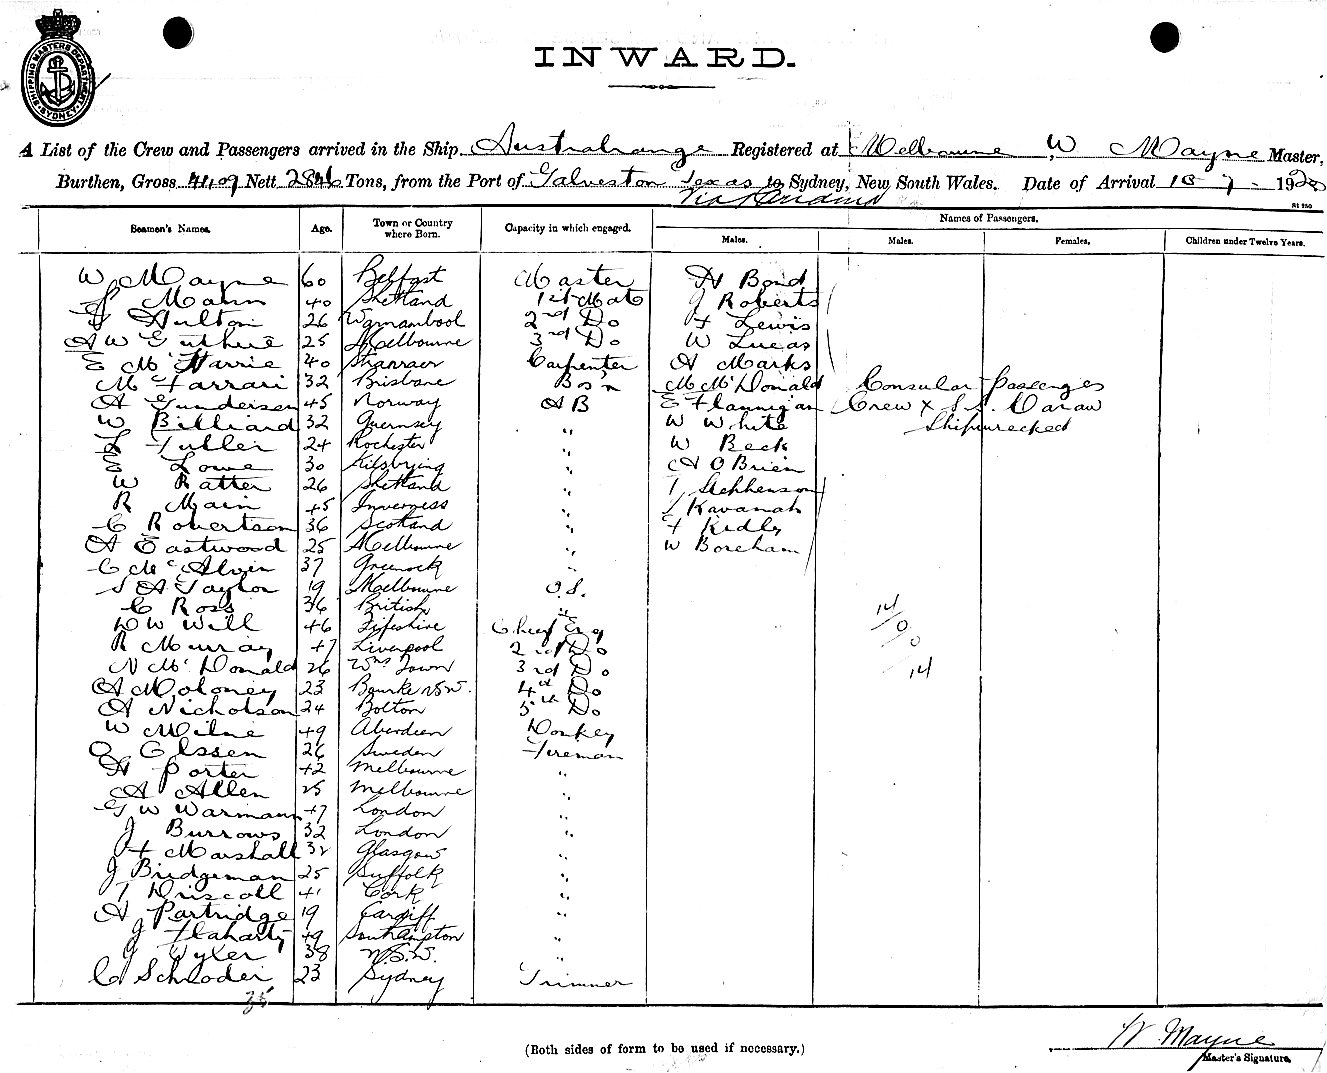 SHIPPING MASTERS DEPARTMENT SYDNEY
INWARD.
A List of the Crew and Passengers arrived in the Ship Australrange Registered at Melbourne, W Mayne Master,
Burthen, Gross 4409 Nett 2846 Tons, from the Port of Galveston Texas to Sydney, New South Wales. Date of Arrival 7 - 1920
Via
Seamen's Names. Age. Town or Country where Born. Capacity in which engaged. Names of Passengers.
Males. Males. Females. Children under Twelve Years.
W Mayne 60 Belfast Master A Bond
Mann 40 Shetland 1st Mate J Roberts
Hulton 26 Warnambool 2nd Do F Lewis
A W Guthrie 25 Melbourne 3rd Do W Lucas
E McHarrie 40 Stranraer Carpenter A Marks
M Farrari 32 Brisbane Bos'n M McDonald Consular Passenges
A Gundersen 45 Norway AB E Flannigan Crew x S.S.
W Billiard 32 Guernsey " W White Shipwrecked
L Fuller 24 Rochester " W Beck
E Lowe 30 " A O'Brien
W Ratter 26 Shetland " T Stephenson
R Main 45 Inverness " J Kavanah
C Robertson 36 Scotland " F Kidly
A Eastwood 25 Melbourne " W Boreham
C McAlvin 37 Greenock "
S A Taylor 19 Melbourne O.S.
C Ross 36 British "
D W Will 46 Fifeshire Chief Eng
R Murray 47 Liverpool 2nd Do
N McDonald 26 Wms Town 3rd Do
A Moloney 23 Bourke NSW. 4th Do
A Nicholson 24 Bolton 5th Do
W Milne 49 Aberdeen Donkey
O Olssen 26 Sweden Fireman
A Porter 42 Melbourne "
A Allen 25 Melbourne "
G W Warmann 47 London "
J Burrows 32 London "
F Marshall 32 Glasgow "
J Bridgeman 25 Suffolk "
T Driscoll 41 Cork "
A Partridge 19 Cardiff "
J Flaharty 49 Southampton "
J Wyler 38 N.S.W. "
C Schroder 23 Sydney Trimmer
35
14/0/0/14
W Mayne
(Both sides of form to be used if necessary.)
Master's Signature.